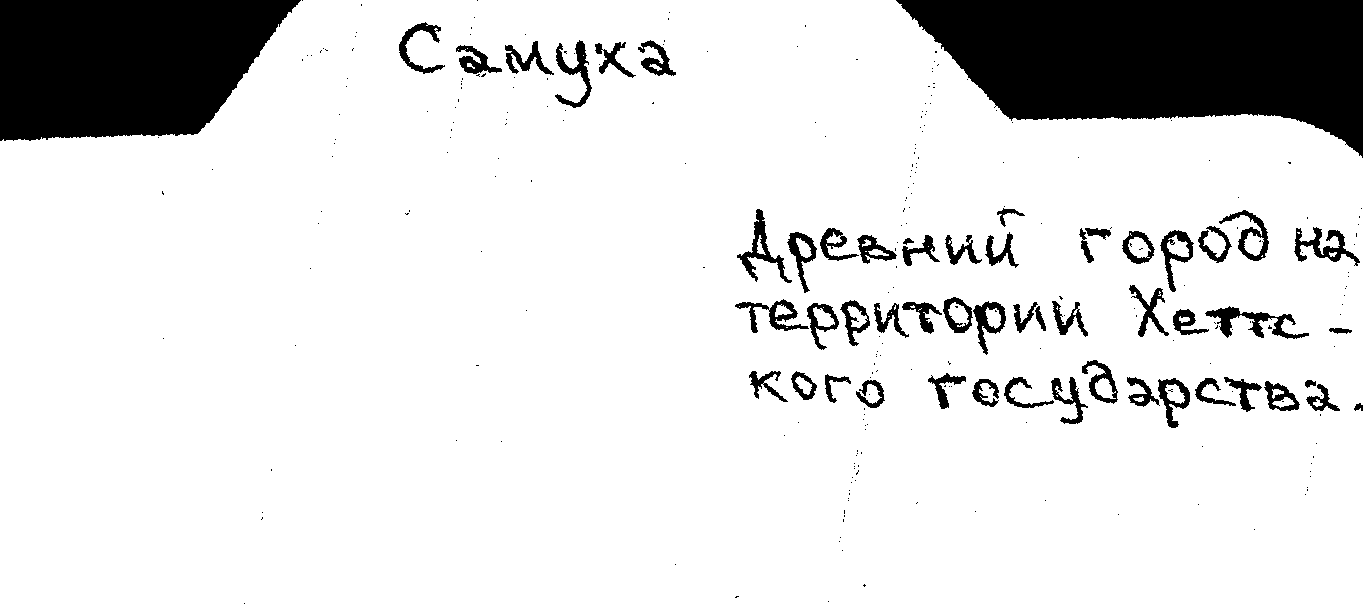 Самуха
Древний город на
территории Хеттс -
кого государства.